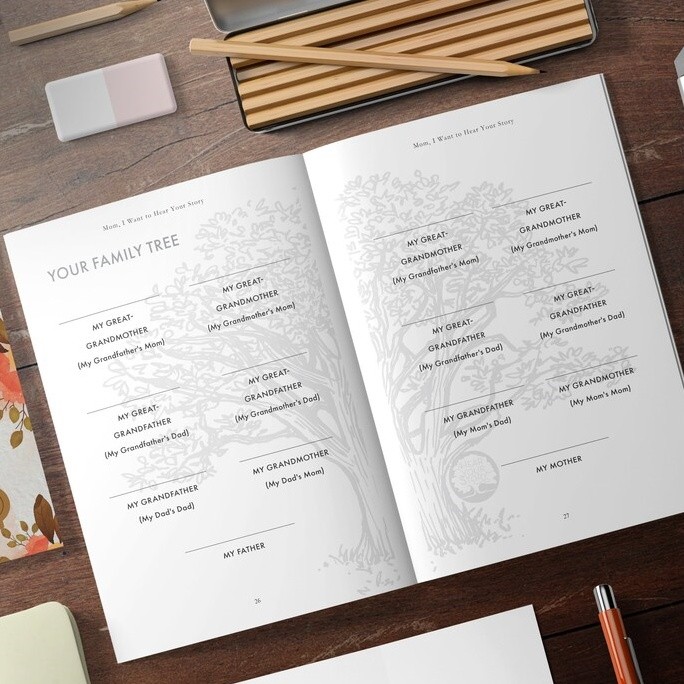 Mom, I Want to Hear Your Story
YOUR FAMILY TREE
MY GREAT-
GRANDMOTHER
(My Grandfather's Mom)
MY GREAT-
GRANDMOTHER
(My Grandmother's Mom)
MY GREAT-
GRANDFATHER
(My Grandfather's Dad)
MY GREAT-
GRANDFATHER
(My Grandmother's Dad)
MY GRANDFATHER
(My Dad's Dad)
MY GRANDMOTHER
(My Dad's Mom)
MY FATHER
26
Mom, I Want to Hear Your Story
MY GREAT-
GRANDMOTHER
(My Grandfather's Mom)
MY GREAT-
GRANDMOTHER
(My Grandmother's Mom)
MY GREAT-
GRANDFATHER
(My Grandfather's Dad)
MY GREAT-
GRANDFATHER
(My Grandmother's Dad)
MY GRANDFATHER
(My Mom's Dad)
MY GRANDMOTHER
(My Mom's Mom)
MY MOTHER
27